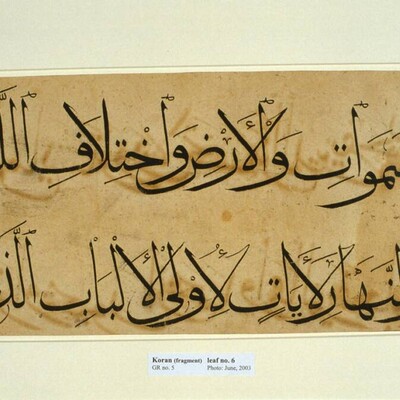 سموات والأرض واختلاف الل
لنهار لآيات لأولى الألباب الذ
Koran (fragment) leaf no. 6
GR no. 5 Photo: June, 2003